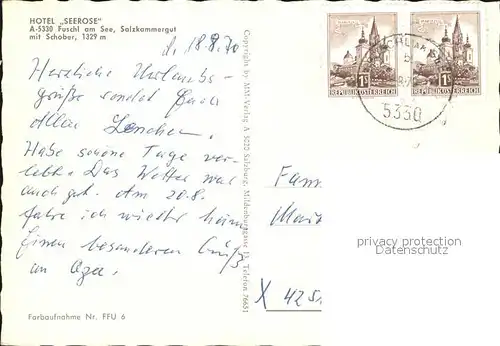 HOTEL „SEEROSE"
A-5330 Fuschl am See, Salzkammergut
mit Schober, 1329 m
d. 18.8.70
Herzliche Urlaubs-
grüße sendet Euch
Allen Lenchen.
Habe schöne Tage ver-
lebt. Das Wetter war
auch gut. Am 20.8.
fahre ich wieder heim
Einen besonderen Gruß
an Opa.
Farbaufnahme Nr. FFU 6
Copyright by MM-Verlag A 5020 Salzburg, Mildenburggasse 19, Telefon 76631
1S
REPUBLIK ÖSTERREICH
1S
REPUBLIK ÖSTERREICH
5330
Fam
X 425
privacy protection
Datenschutz